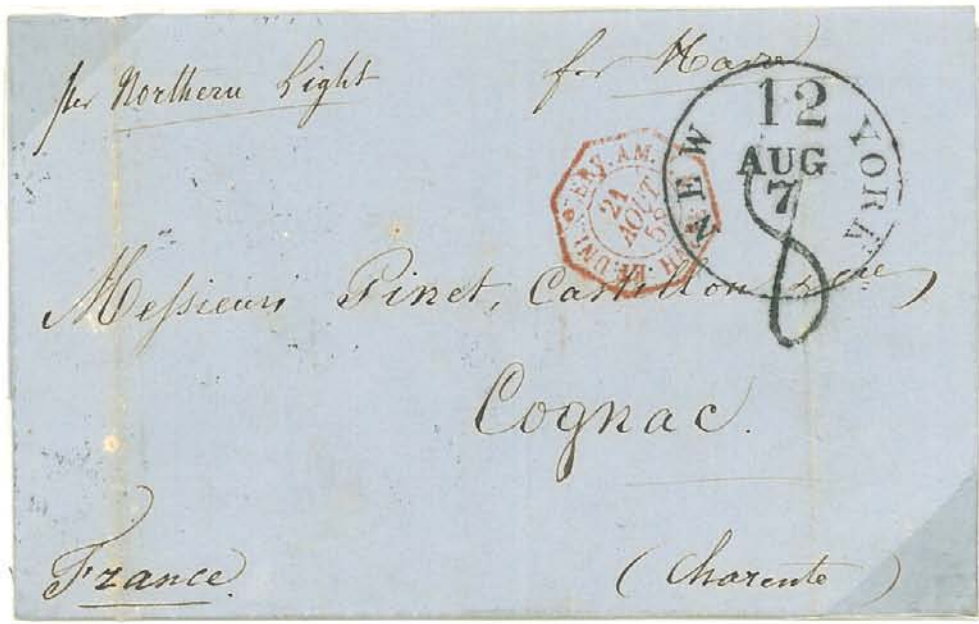 per Northern Light
for Havre
NEW YORK
12
AUG
7
8
ET. UNI. SERV. AM. H
21
AOUT
58
Messieurs Pinet, Castillon &
Cognac.
France.
(Charente)